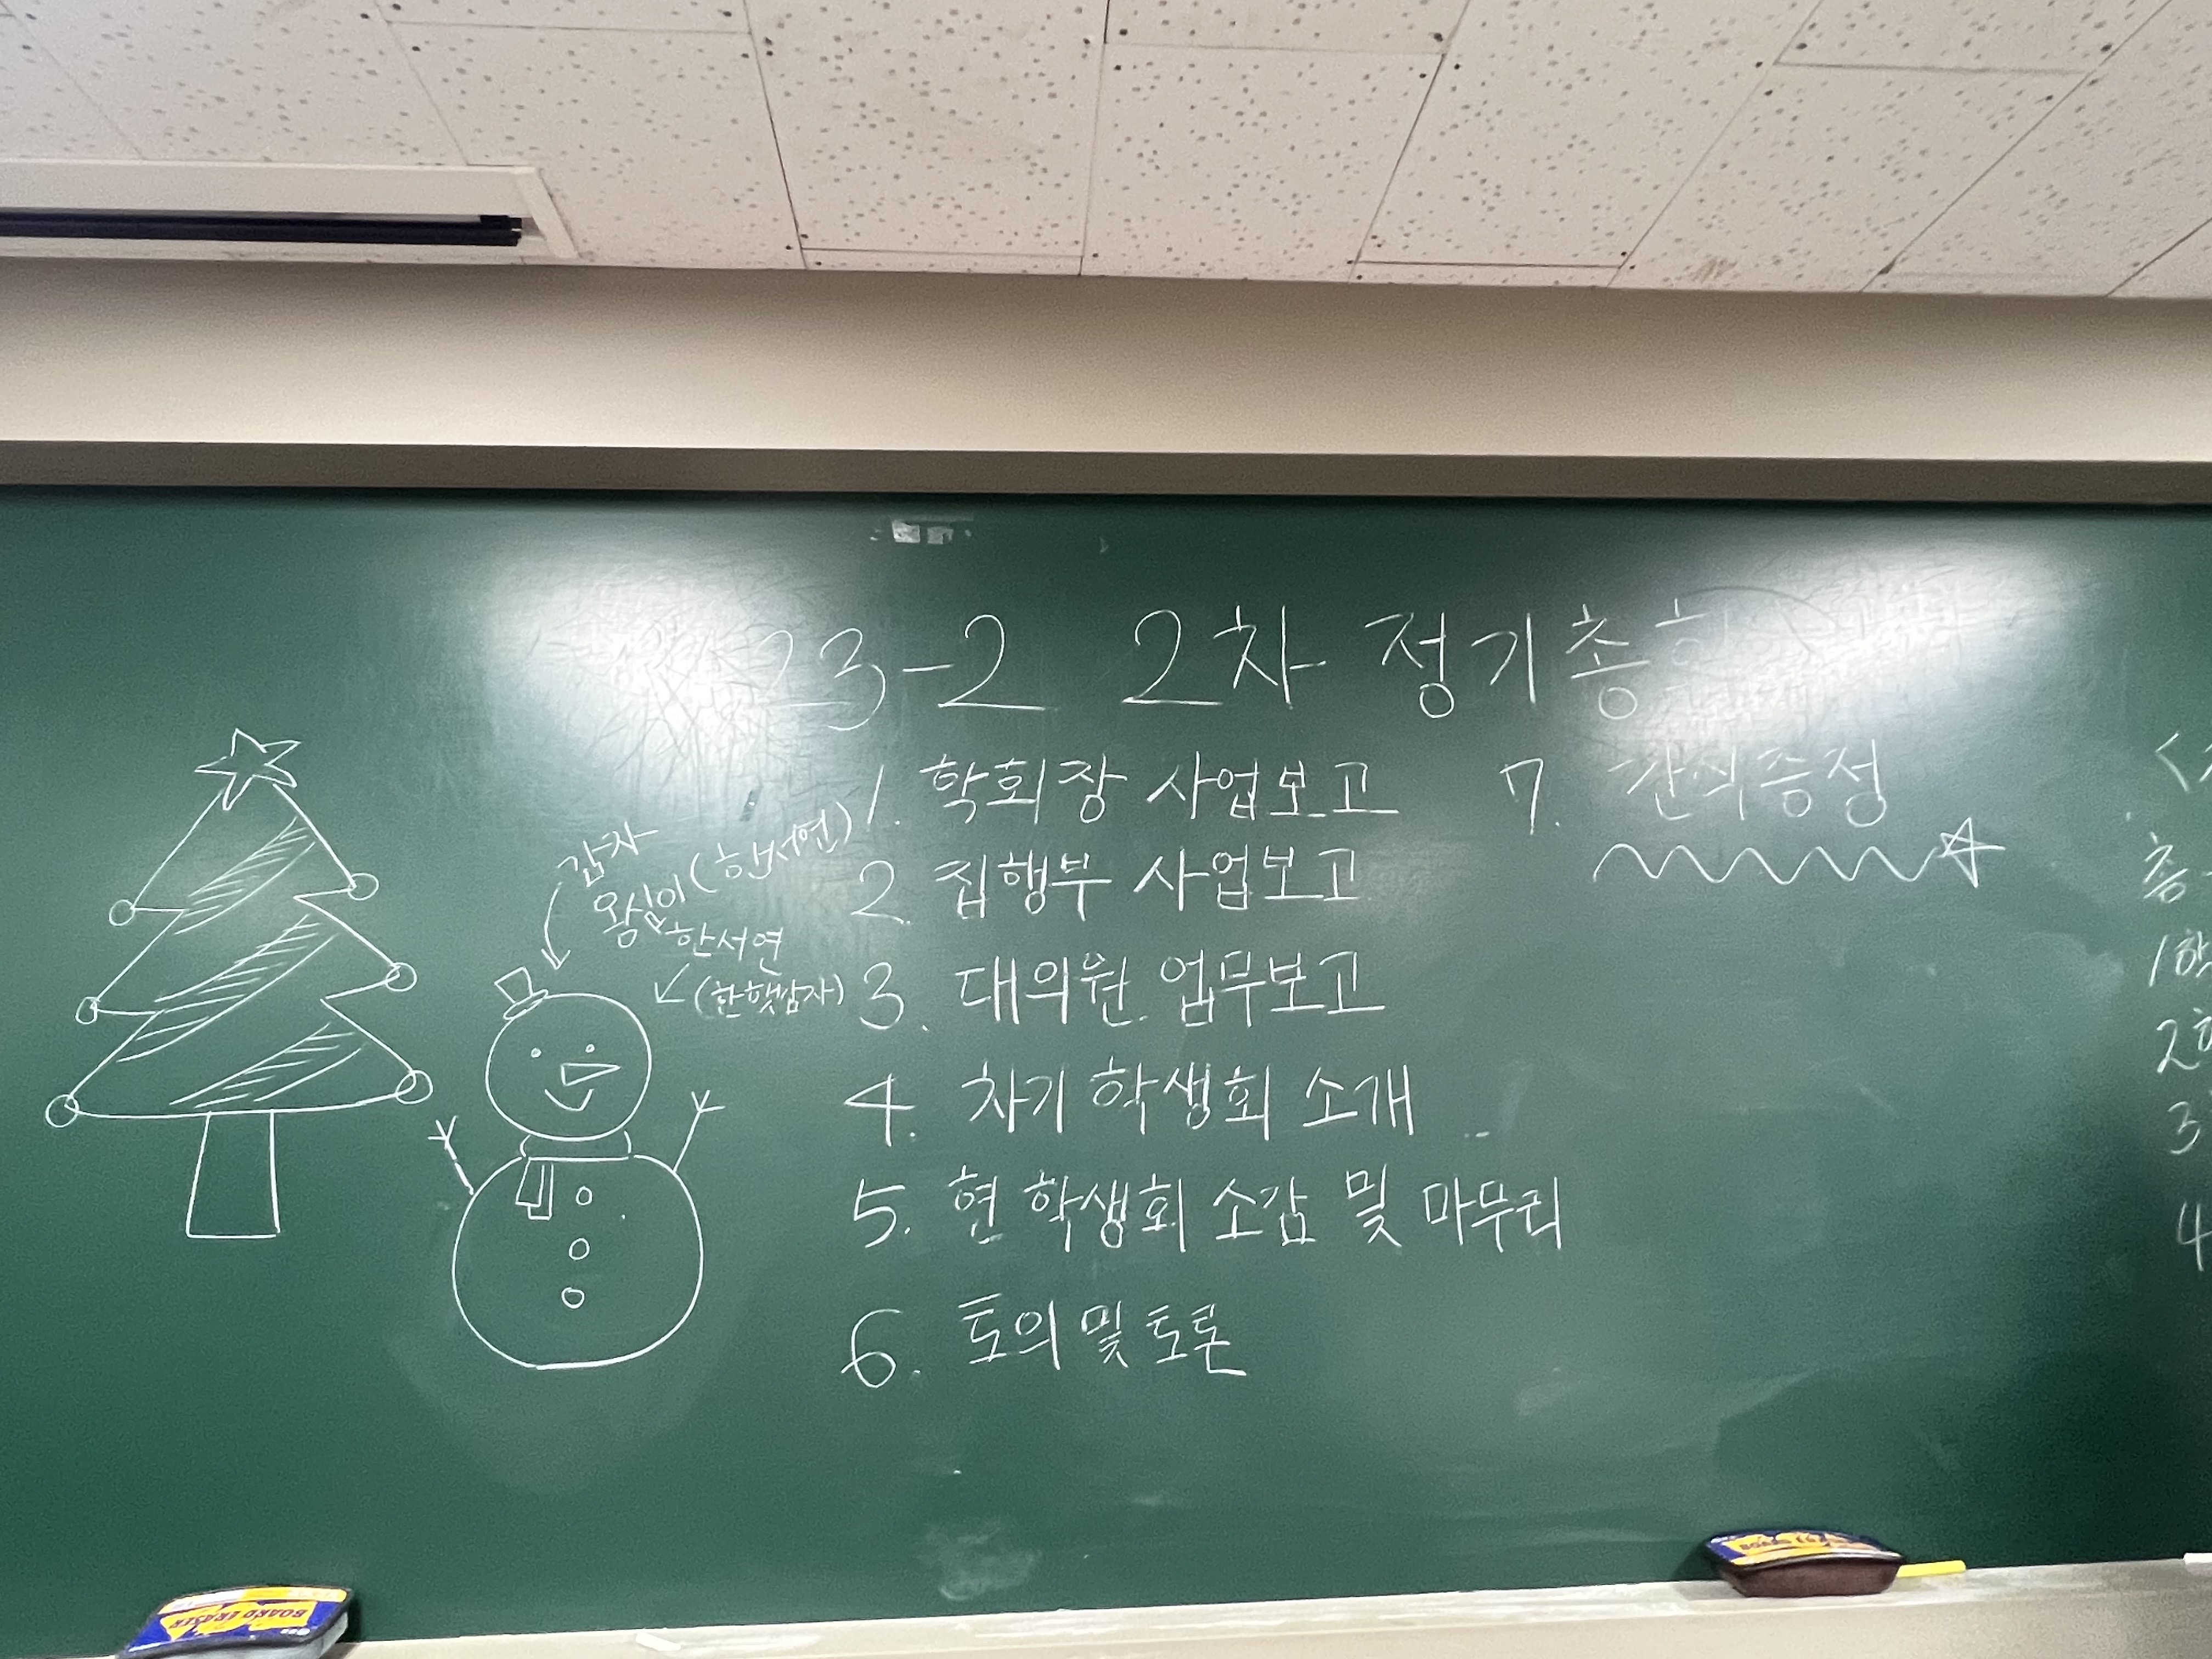 23-2 2차 정기총회
1. 학회장 사업보고
2. 집행부 사업보고
3. 대의원 업무보고
4. 차기 학생회 소개
5. 현 학생회 소감 및 마무리
6. 토의 및 토론
7. 간식증정
감자
왕심이 (한서연)
한서연
(한햇감자)
총
1학
2학
3
4
BOARD ERASER
BOARD